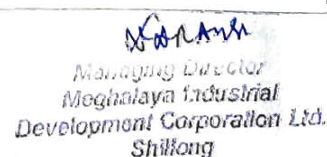 Managing Director
Meghalaya Industrial
Development Corporation Ltd.
Shillong